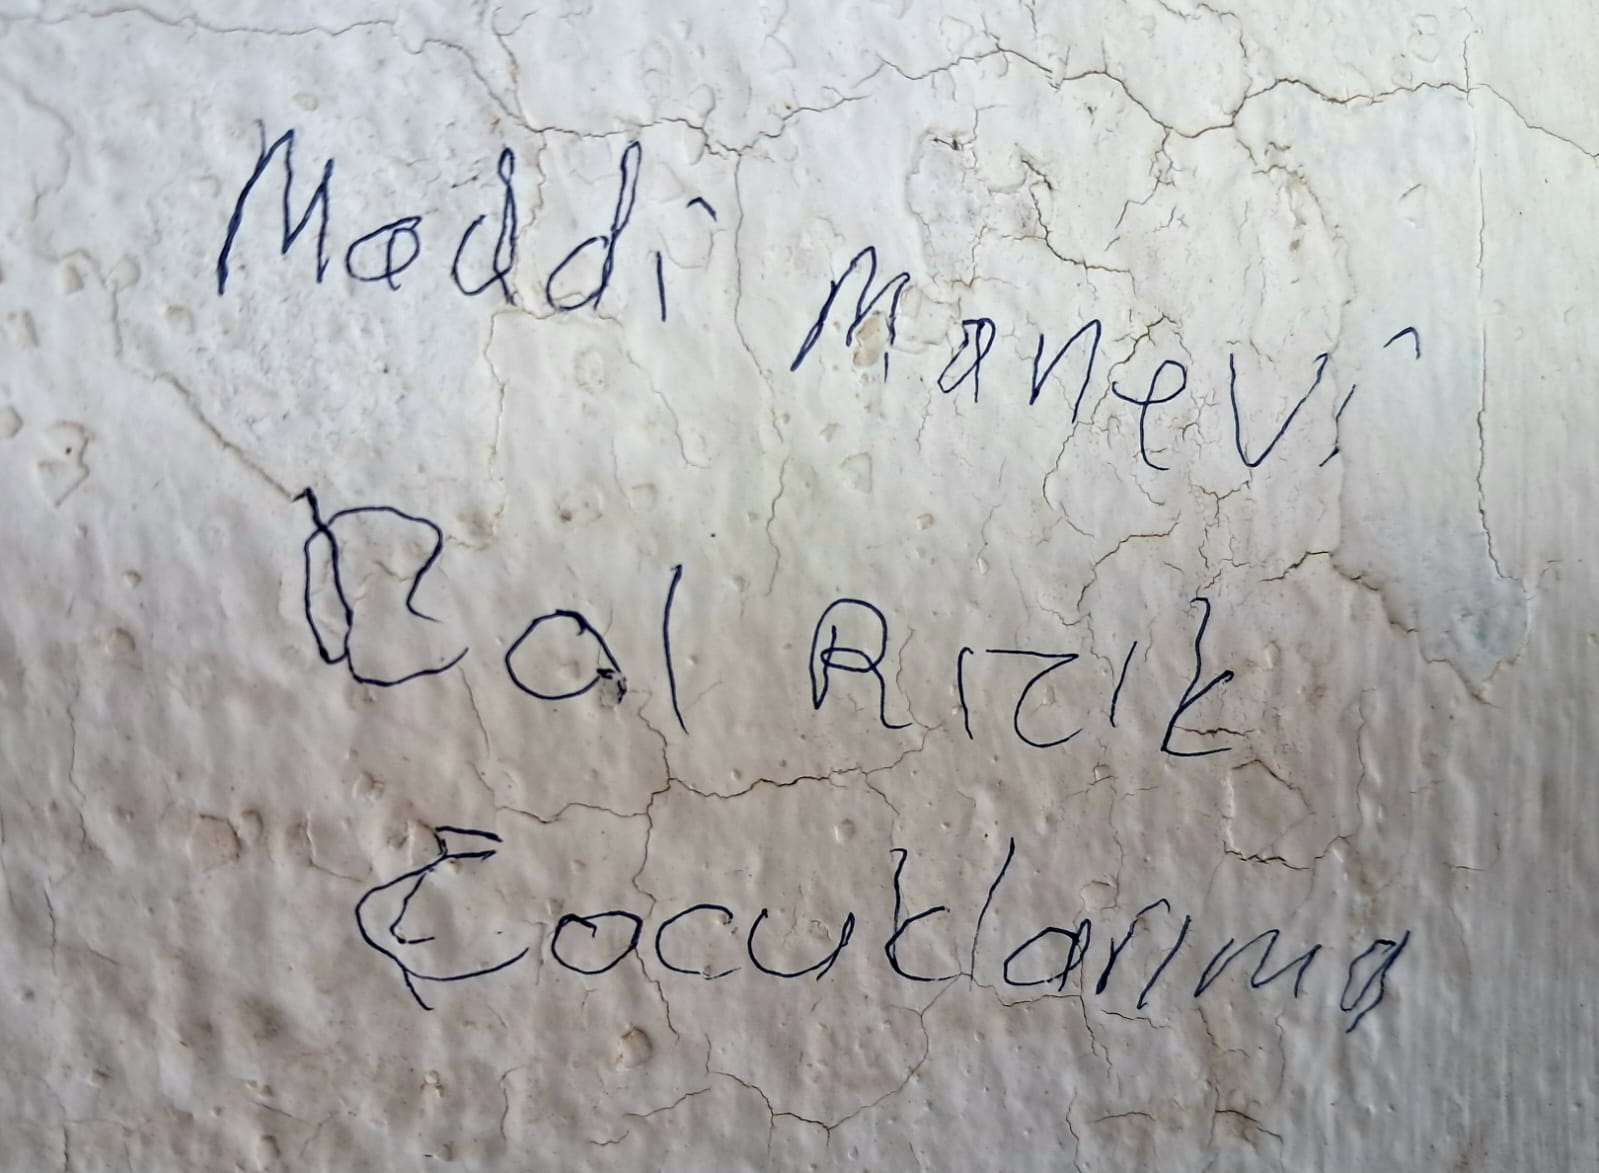 Maddi Manevi
Bol Rızık
Çocuklarıma